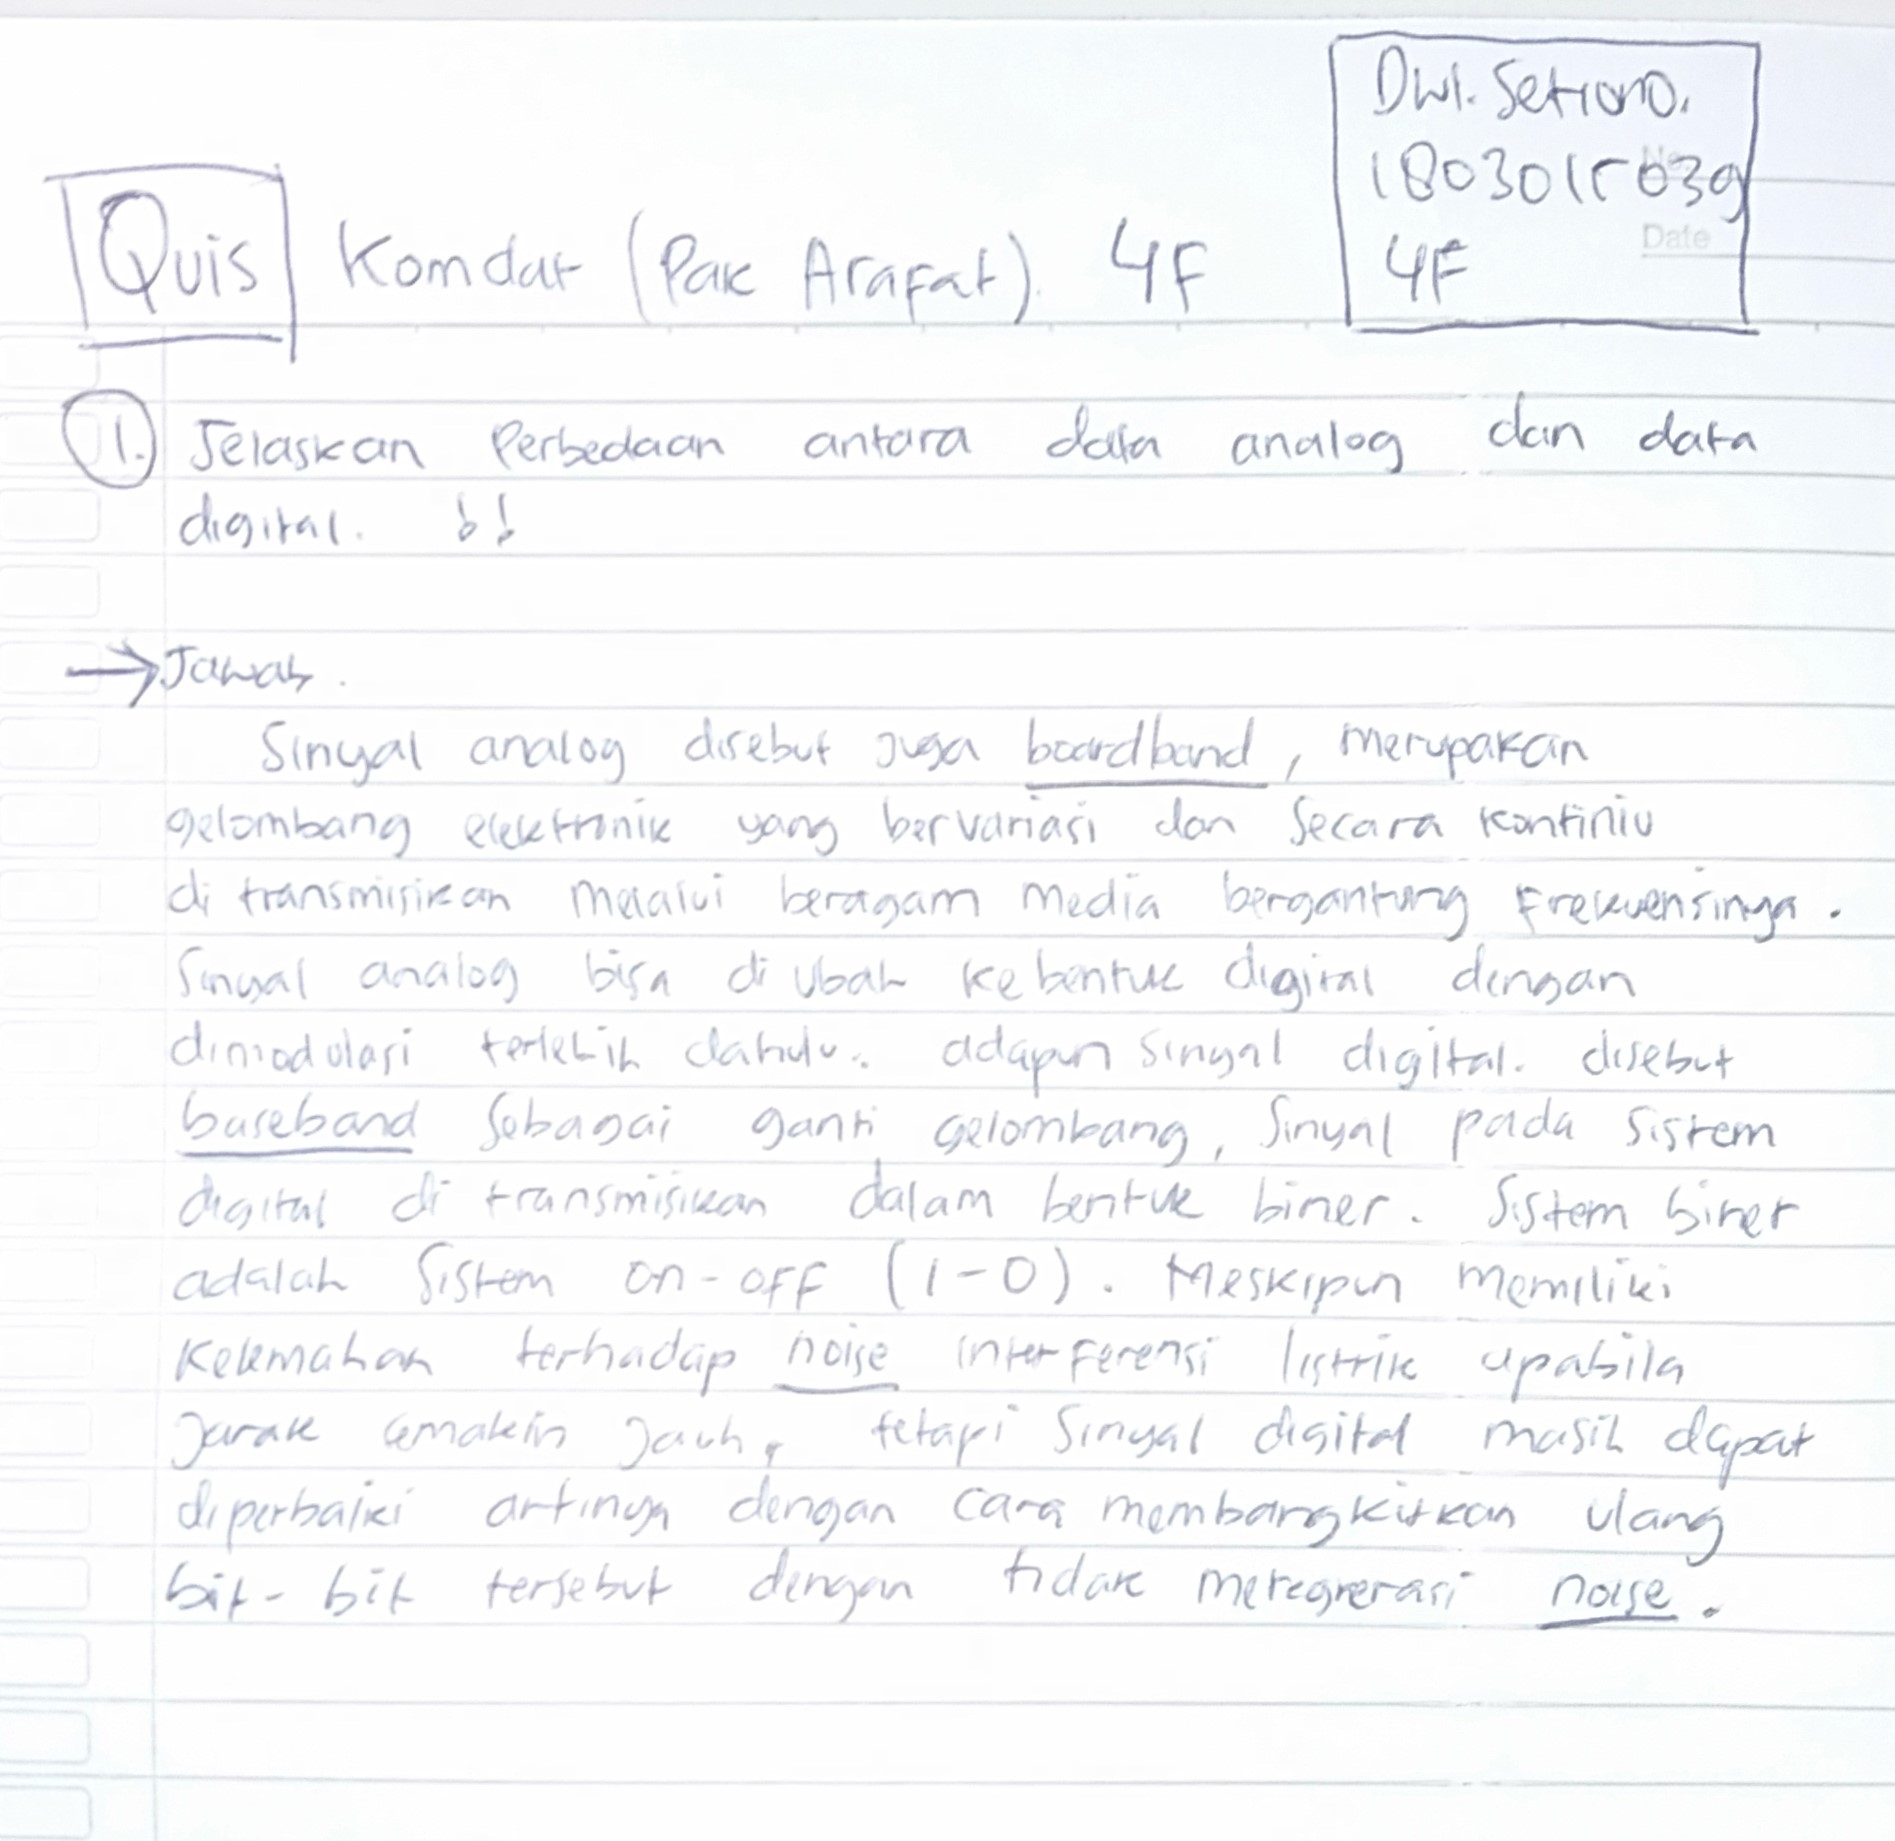 Dwi. Setiono.
No
18030115039
Date
4F
Quis Komdat (Pak Arafat). 4F
1. Jelaskan Perbedaan antara data analog dan data
digital. !!
→ Jawab.
Sinyal analog disebut juga boardband, merupakan
gelombang elektronik yang bervariasi dan secara kontiniu
di transmisikan melalui beragam media bergantung frekuensinya.
Sinyal analog bisa di ubah kebentuk digital dengan
dimodulasi terlebih dahulu. adapun sinyal digital. disebut
baseband sebagai ganti gelombang, sinyal pada sistem
digital di transmisikan dalam bentuk biner. Sistem biner
adalah sistem on-off (1-0). Meskipun memiliki
kelemahan terhadap noise interferensi listrik apabila
jarak semakin jauh, tetapi sinyal digital masih dapat
diperbaiki artinya dengan cara membangkitkan ulang
bit-bit tersebut dengan tidak noise.